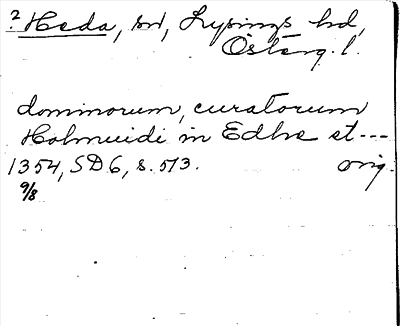 ? Heda, sn, Lysings hd,
Österg. l.
dominorum, curatorum
Holmuidi in Edhe et ---
1354, SD 6, s. 513. orig.
9/8